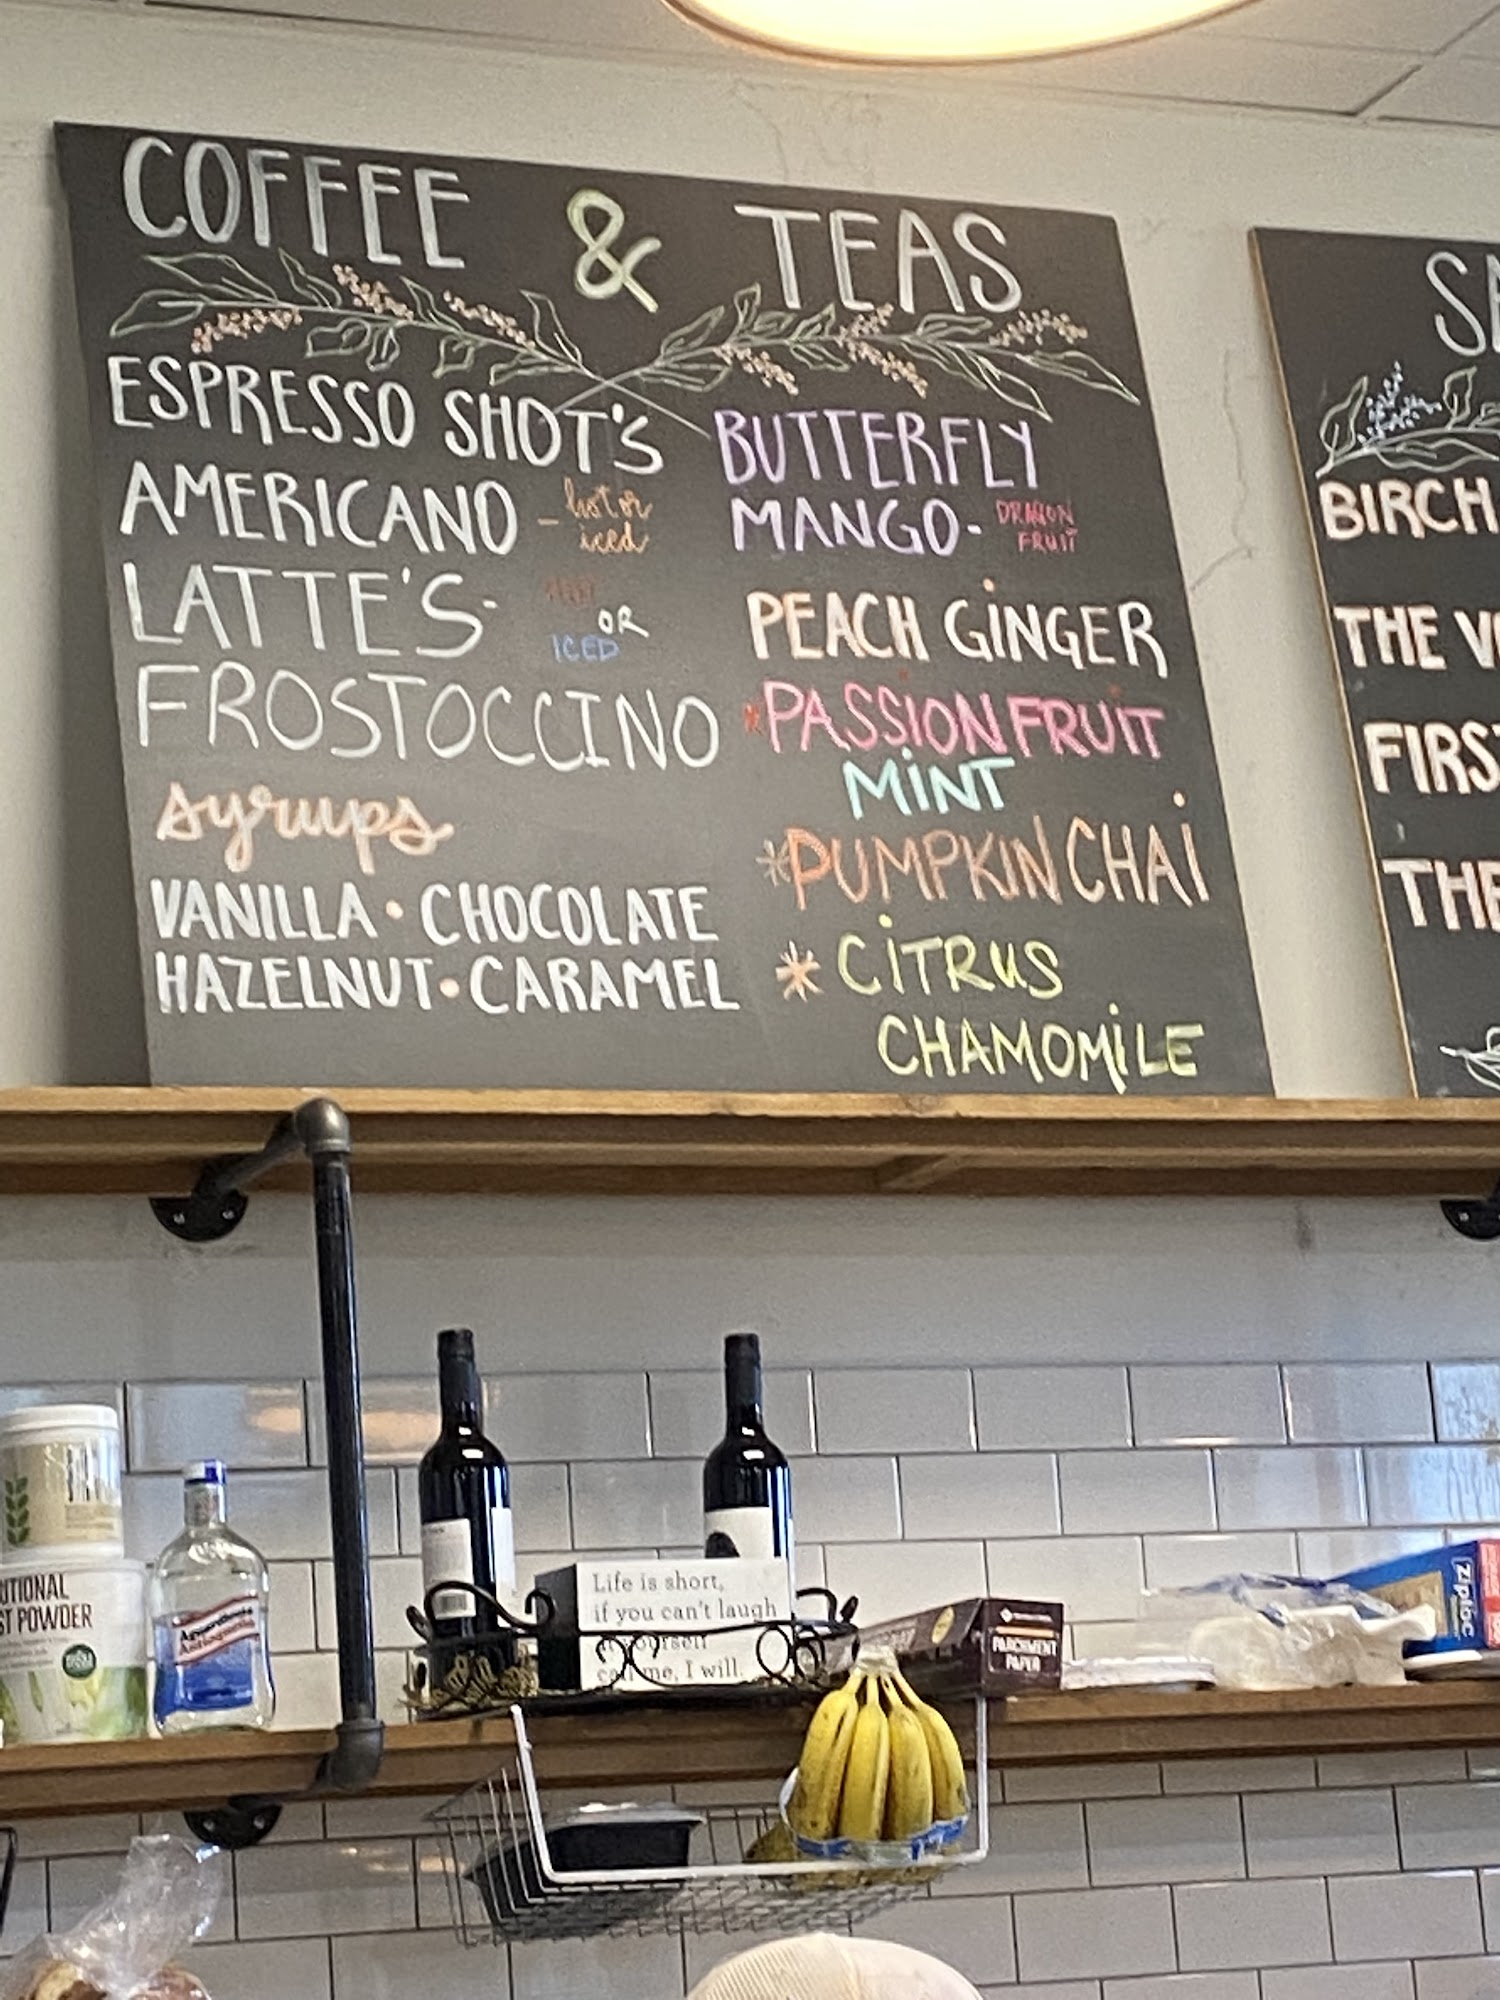 COFFEE & TEAS
ESPRESSO SHOT'S
AMERICANO - hot or
iced
LATTE'S-
OR
ICED
FROSTOCCINO
syrups
VANILLA • CHOCOLATE
HAZELNUT • CARAMEL
BUTTERFLY
MANGO - DRAGON
FRUIT
PEACH GINGER
*PASSION FRUIT
MINT
*PUMPKIN CHAI
* CITRUS
CHAMOMILE
SA
BIRCH
THE V
FIRST
THE
ST POWDER
Aguardiente
Antioqueño
Life is short,
if you can't laugh
at yourself
call me, I will.
PARCHMENT
PAPER
Ziploc